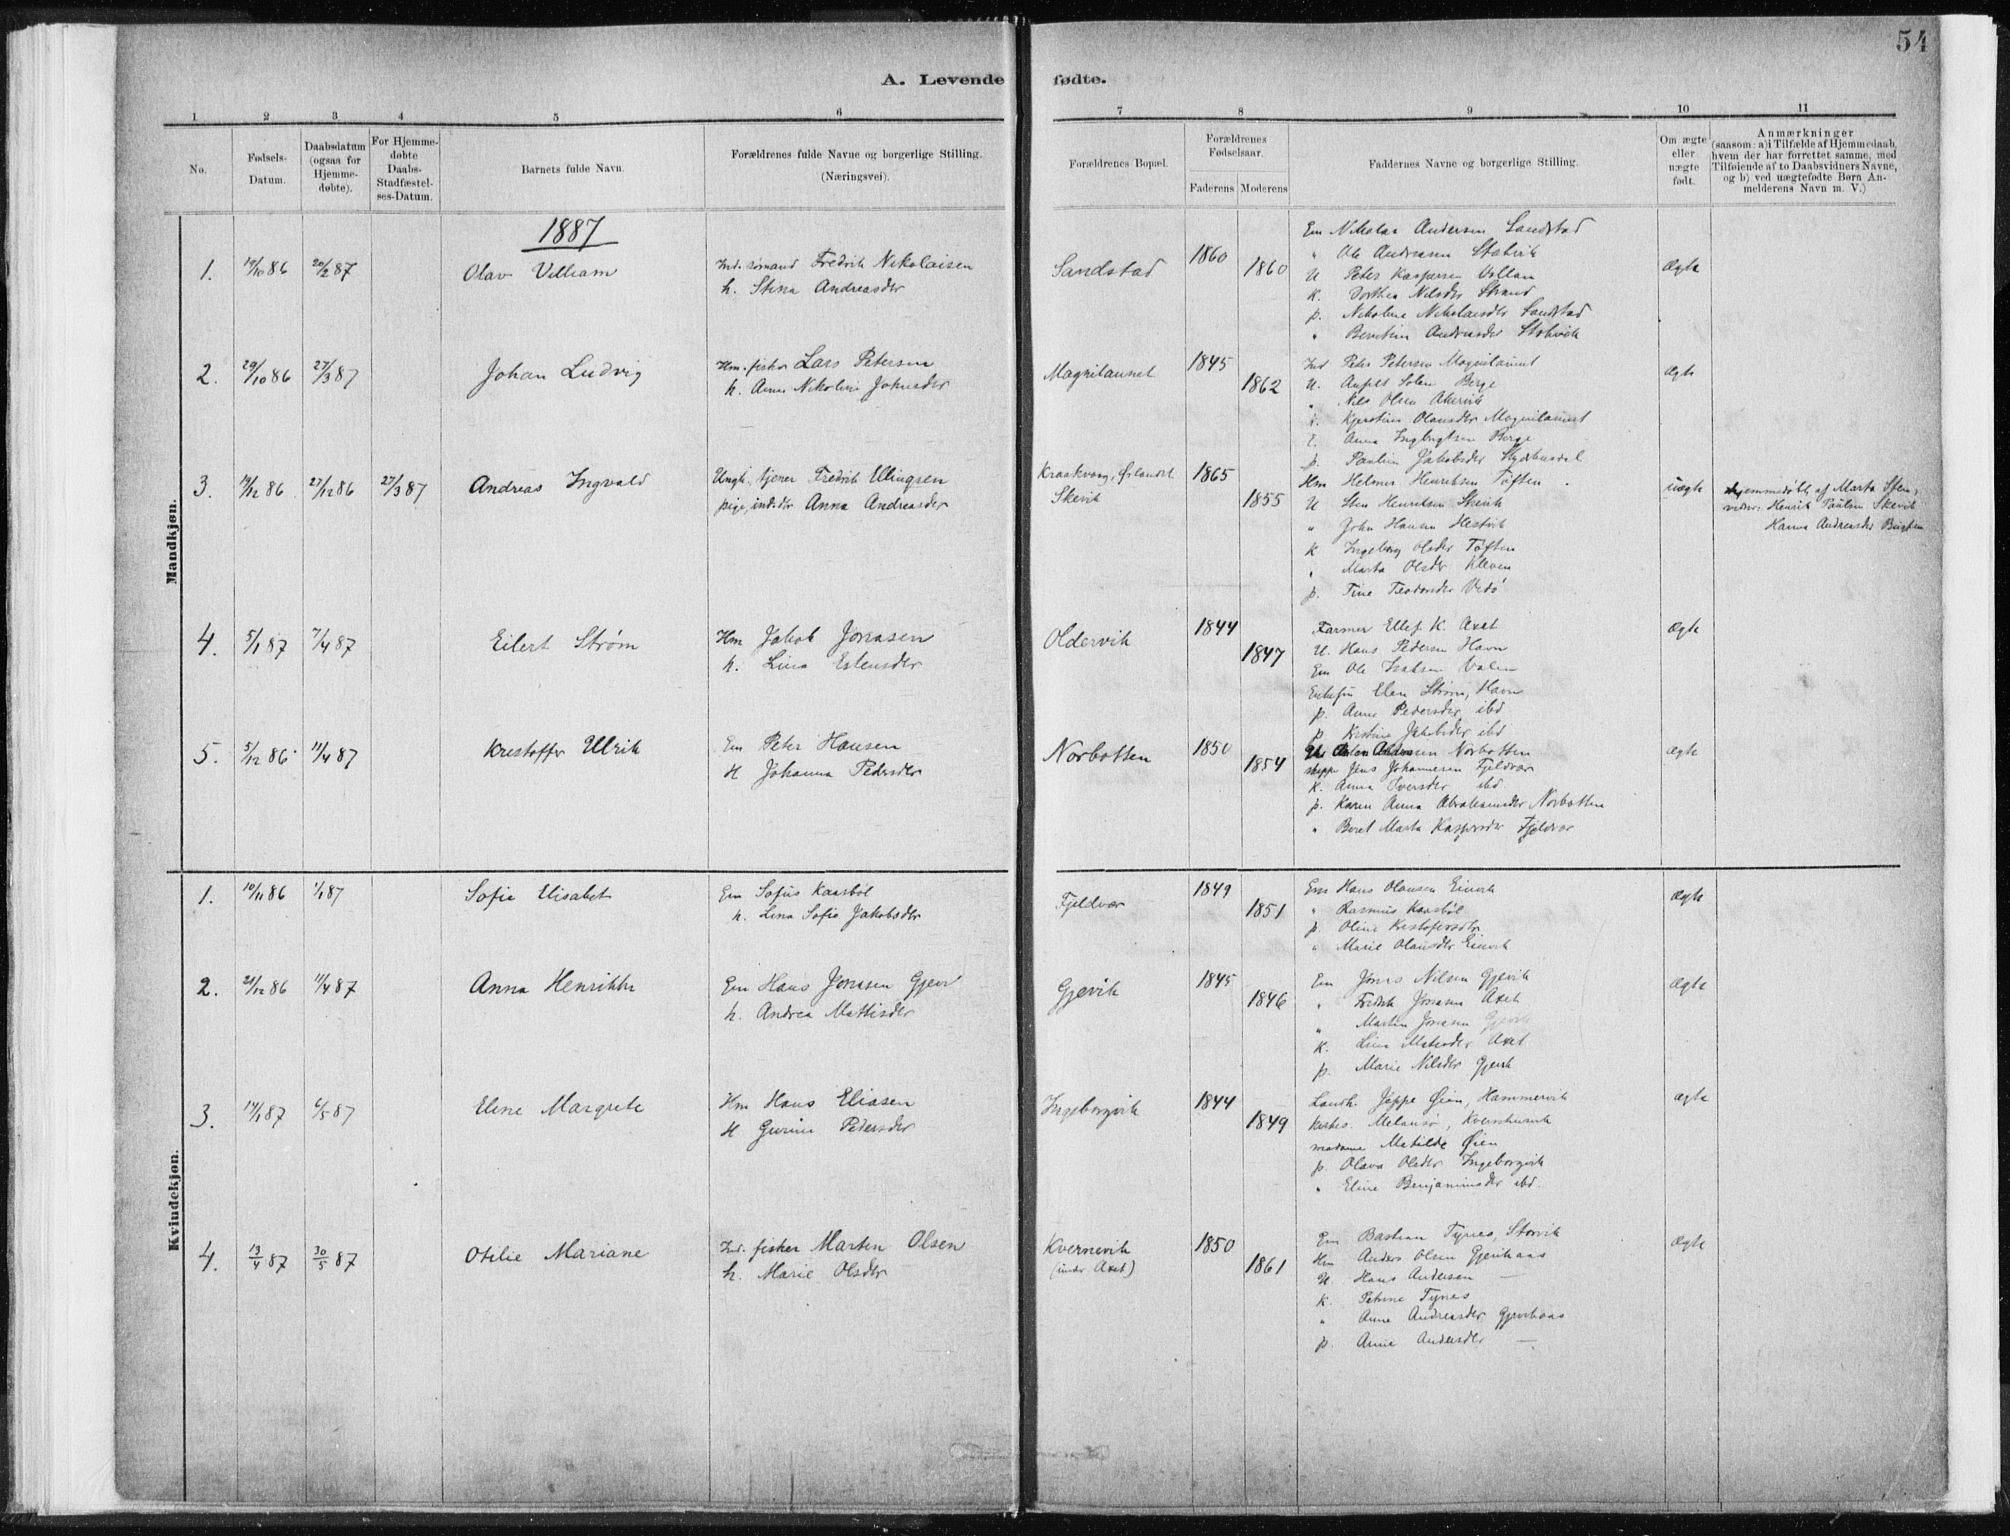 54
A. Levende fødte.
1 2 3 4 5 6 7 8 9 10 11
No.
Fødsels-
Datum.
Daabsdatum
(ogsaa for
Hjemme-
døbte).
For Hjemme-
døbte
Daabs-
Stadfæstel-
ses-Datum.
Barnets fulde Navn.
Forældrenes fulde Navne og borgerlige Stilling.
(Næringsvei).
Forældrenes Bopæl.
Forældrenes
Fødselsaar.
Faderens Moderens
Faddernes Navne og borgerlige Stilling.
Om ægte
eller
uægte
født.
Anmærkninger
(saasom: a) i Tilfælde af Hjemmedaab,
hvem der har forrettet samme, med
Tilføiende af to Daabsvidners Navne,
og b) ved uægtefødte Børn An-
melderens Navn m. V.)
Mandkjøn.
1887
1. 19/10 86 20/2 87 Olav Villiam
Ind. sømand Fredrik Nikolaisen
h. Stina Andreasdtr
Sandstad 1860 1860
Em Nikolai Andersen Sandstad
" Ole Andreasen Stokvik
U Peter Kaspersen Vollan
K. Dorthea Nilsdtr Strand
p. Nikoline Nikolaisdtr Sandstad
" Berntine Andreasdtr Stokvik
Ægte
2. 29/10 86 27/3 87 Johan Ludvig
Hm. fisker Lars Petersen
h. Anna Nikoline Johnsdtr
Magnilaunet 1845 1862
Ind Peter Petersen Magnilaunet
U. Olsen Berge
" Nils Olsen
k. Kjerstine Olausdtr Magnilaunet
Anna Ingebrigtsen Berge
p. Pauline Jakobsdtr
Ægte
3. 19/12 86 27/12 86 27/3 87 Andreas Ingvald
Ungk. tjener Fredrik Ellingsen
pige, inds.dtr Anna Andreasdtr
Kraakvaag, Ørlandet
Skevik
1865 1855
Hm Helmer Henriksen Tøften
U Sten Henriksen Skevik
" John Hansen Hestvik
K Ingeborg Olsdtr Tøften
" Marta Olsdtr Kleven
p. Tine Teodorsdtr Vedø
uægte
Hjemmedøbt af Marta Sten,
vidner: Henrik Paulsen Skevik
Hanna Andreasdtr
4. 5/1 87 7/4 87 Eilert Strøm
Hm Jakob Jonasen
h. Lina Estensdtr
Oldervik 1844 1847
Farmer Ellef K. Axet
U. Hans Pedersen Havn
Em Ole Isaksen Valen
Enkefru Elen Strøm, Havn
p. Anne Pedersdtr ibd
p Kristine Jakobsdtr ibd
Ægte
5. 5/12 86 11/4 87 Kristoffer Ulrik
Em Peter Hansen
H Johanna Pedersdtr
Norbotten 1850 1854
Norbotten
skipper Jens Johannesen Fjeldvær
K. Anna Iversdtr ibd
p. Karen Anna Abrahamsdtr Norbotten
" Beret Marta Kaspersdtr Fjeldvær
ægte
Kvindekjøn.
1. 10/11 86 1/1 87 Sofie Elisabet
Em Sofus Kaasbøl
h. Lina Sofie Jakobsdtr
Fjeldvær 1849 1851
Em Hans Olausen Einvik
" Rasmus Kaasbøl
p. Oline Kristofersdtr
" Marie Olausdtr Einvik
Ægte
2. 21/12 86 11/4 87 Anna Henrikke
Em Hans Jonasen Gjevik
h. Andrea Mattisdtr
Gjevik 1845 1846
Em Jonas Nilsen Gjevik
" Fredrik Jonasen Axet
" Martin Jonasen Gjevik
K. Lina Axet
p. Marie Nilsdtr Gjevik
Ægte
3. 14/1 87 6/5 87 Eline Margrete
Hm Hans Eliasen
H Gurine Pedersdtr
Ingeborgvik 1844 1849
Landh. Jeppe Øien, Hammervik
Melansø, Kvernhusvik
madame Matilde Øien
p. Olava Olsdtr Ingeborgvik
" Eline Benjaminsdtr ibd.
ægte
4. 13/4 87 30/5 87 Otilie Mariane
Ind. fisker Marten Olsen
h. Marie Olsdtr
Kvernevik
(under Axet)
1850 1861
Em Bastian Tynes, Storvik
Hm Anders Olsen
U. Hans Andersen —
K. Petrine Tynes
" Anne Andreasdtr
p. Anne Andersdtr —
Ægte